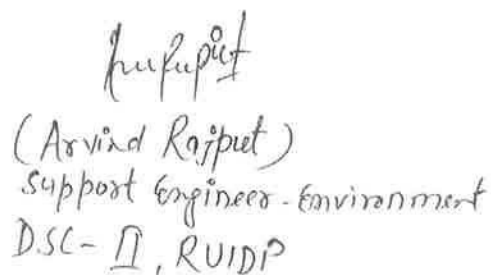 (Arvind Rajput)
Support Engineer-Environment
DSC-II, RUIDP